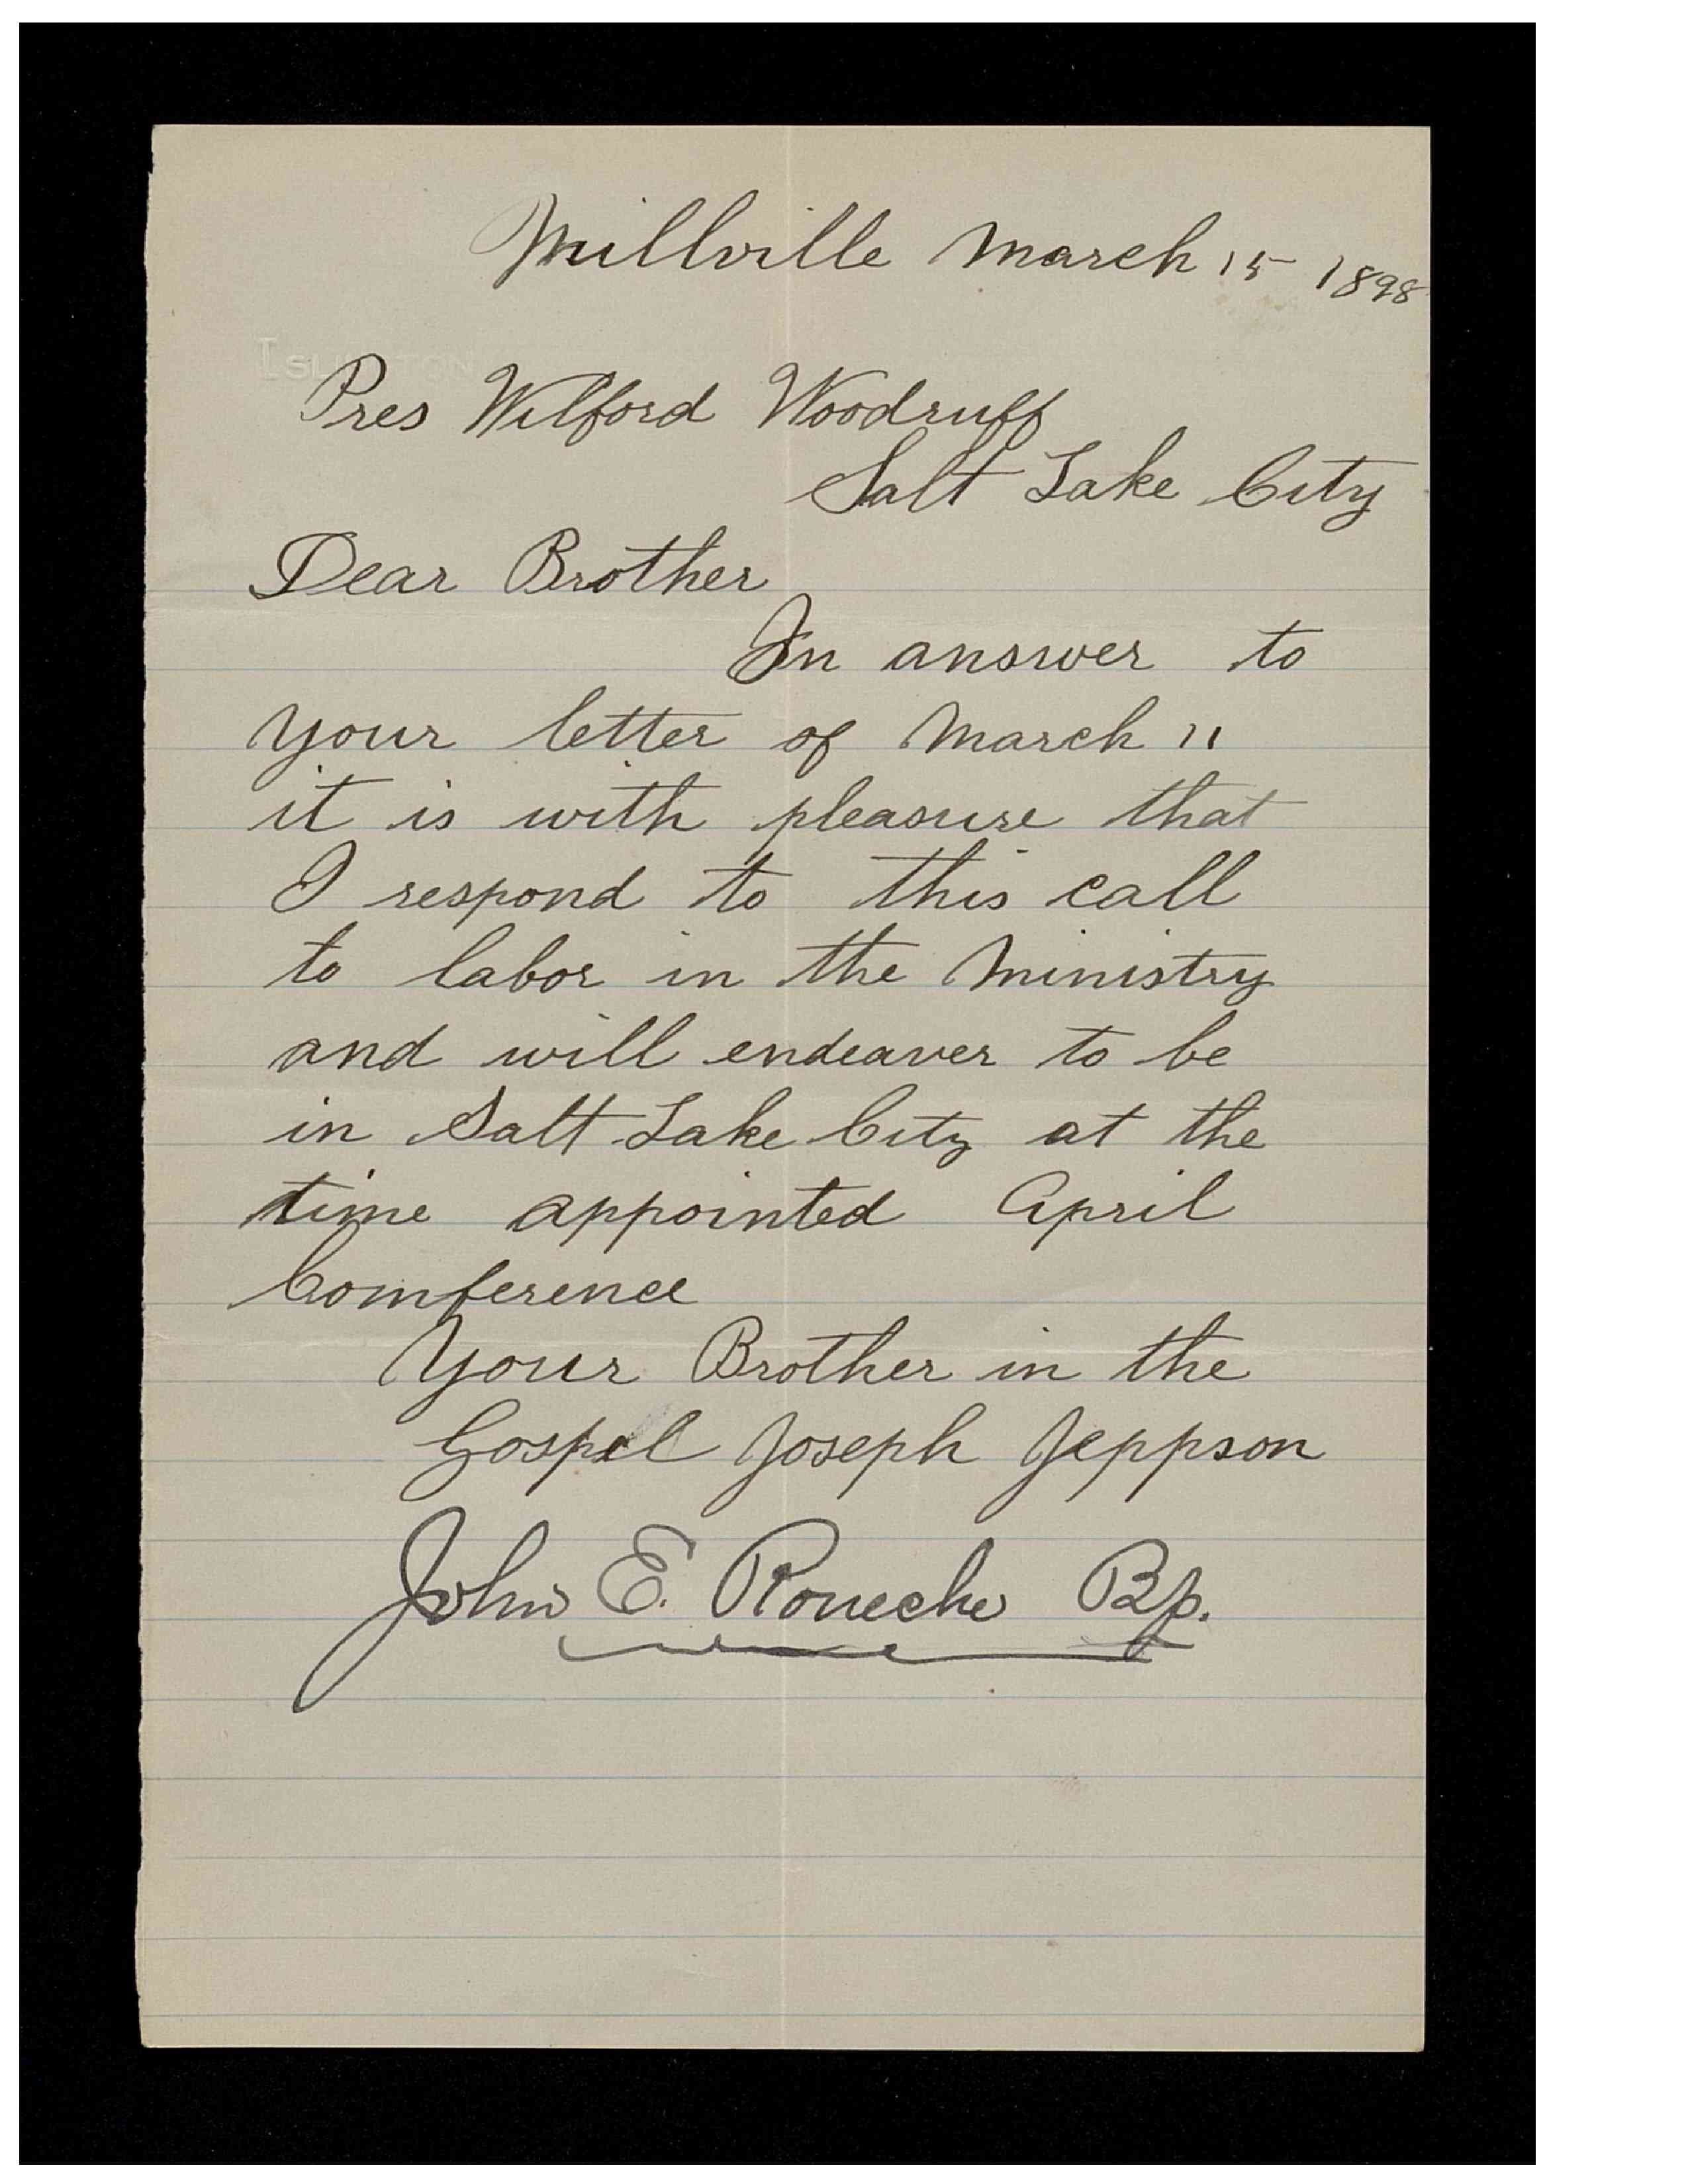 Millville March 15 1898
Pres Wilford Woodruff
Salt Lake City
Dear Brother
In answer to
your letter of March 11
it is with pleasure that
I respond to this call
to labor in the Ministry
and will endeaver to be
in Salt Lake City at the
time appointed April
Comference
Your Brother in the
Gospel Joseph Jeppson
John E. Roueche Bp.